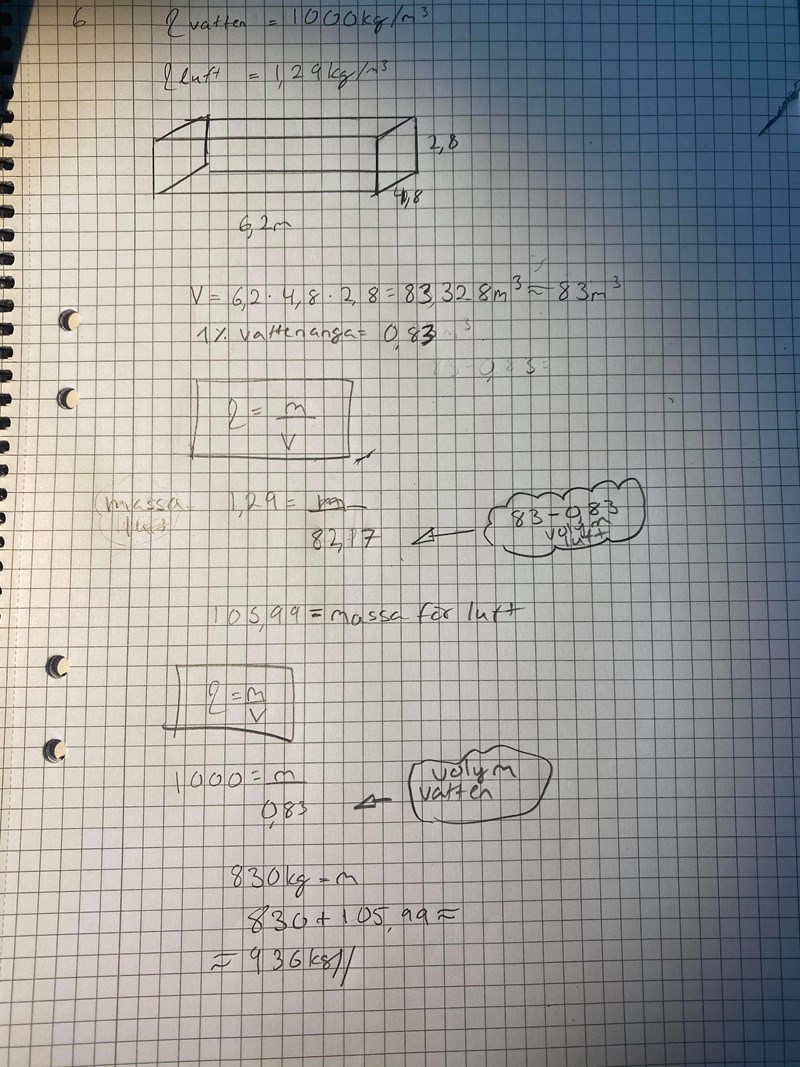 6 ρ vatten = 1000kg/m³
ρ luft = 1,29kg/m³
2,8
4,8
6,2m
V = 6,2 · 4,8 · 2,8 = 83,328m³ ≈ 83m³
1% vattenånga = 0,83 m³
83-0,83=
ρ = m/V
massa luft
1,29 = m/82,17
83-0,83
volym
luft
105,99 = massa för luft
ρ = m/V
1000 = m/0,83
volym
vatten
830kg = m
830 + 105,99 ≈
≈ 936kg//